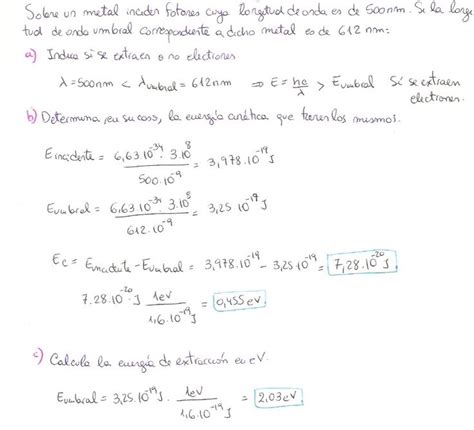 Sobre un metal inciden fotones cuya longitud de onda es de 500nm. Si la longi
tud de onda umbral correspondiente a dicho metal es de 612 nm:
a) Indica si se extraen o no electrones.
λ=500nm < λumbral = 612nm ⇒ E = hc/λ > Eumbral Sí se extraen
electrones.
b) Determina, en su caso, la energía cinética que tienen los mismos.
Eincidente = 6,63.10^-34 . 3.10^8 / 500.10^-9 = 3,978.10^-19 J
Eumbral = 6,63.10^-34 . 3.10^8 / 612.10^-9 = 3,25.10^-19 J
Ec = Eincidente - Eumbral = 3,978.10^-19 - 3,25.10^-19 = 7,28.10^-20 J
7.28.10^-20 J 1eV / 1,6.10^-19 J = 0,455 eV.
c) Calcula la energía de extracción en eV.
Eumbral = 3,25.10^-19 J . 1eV / 1,6.10^-19 J = 2,03 eV